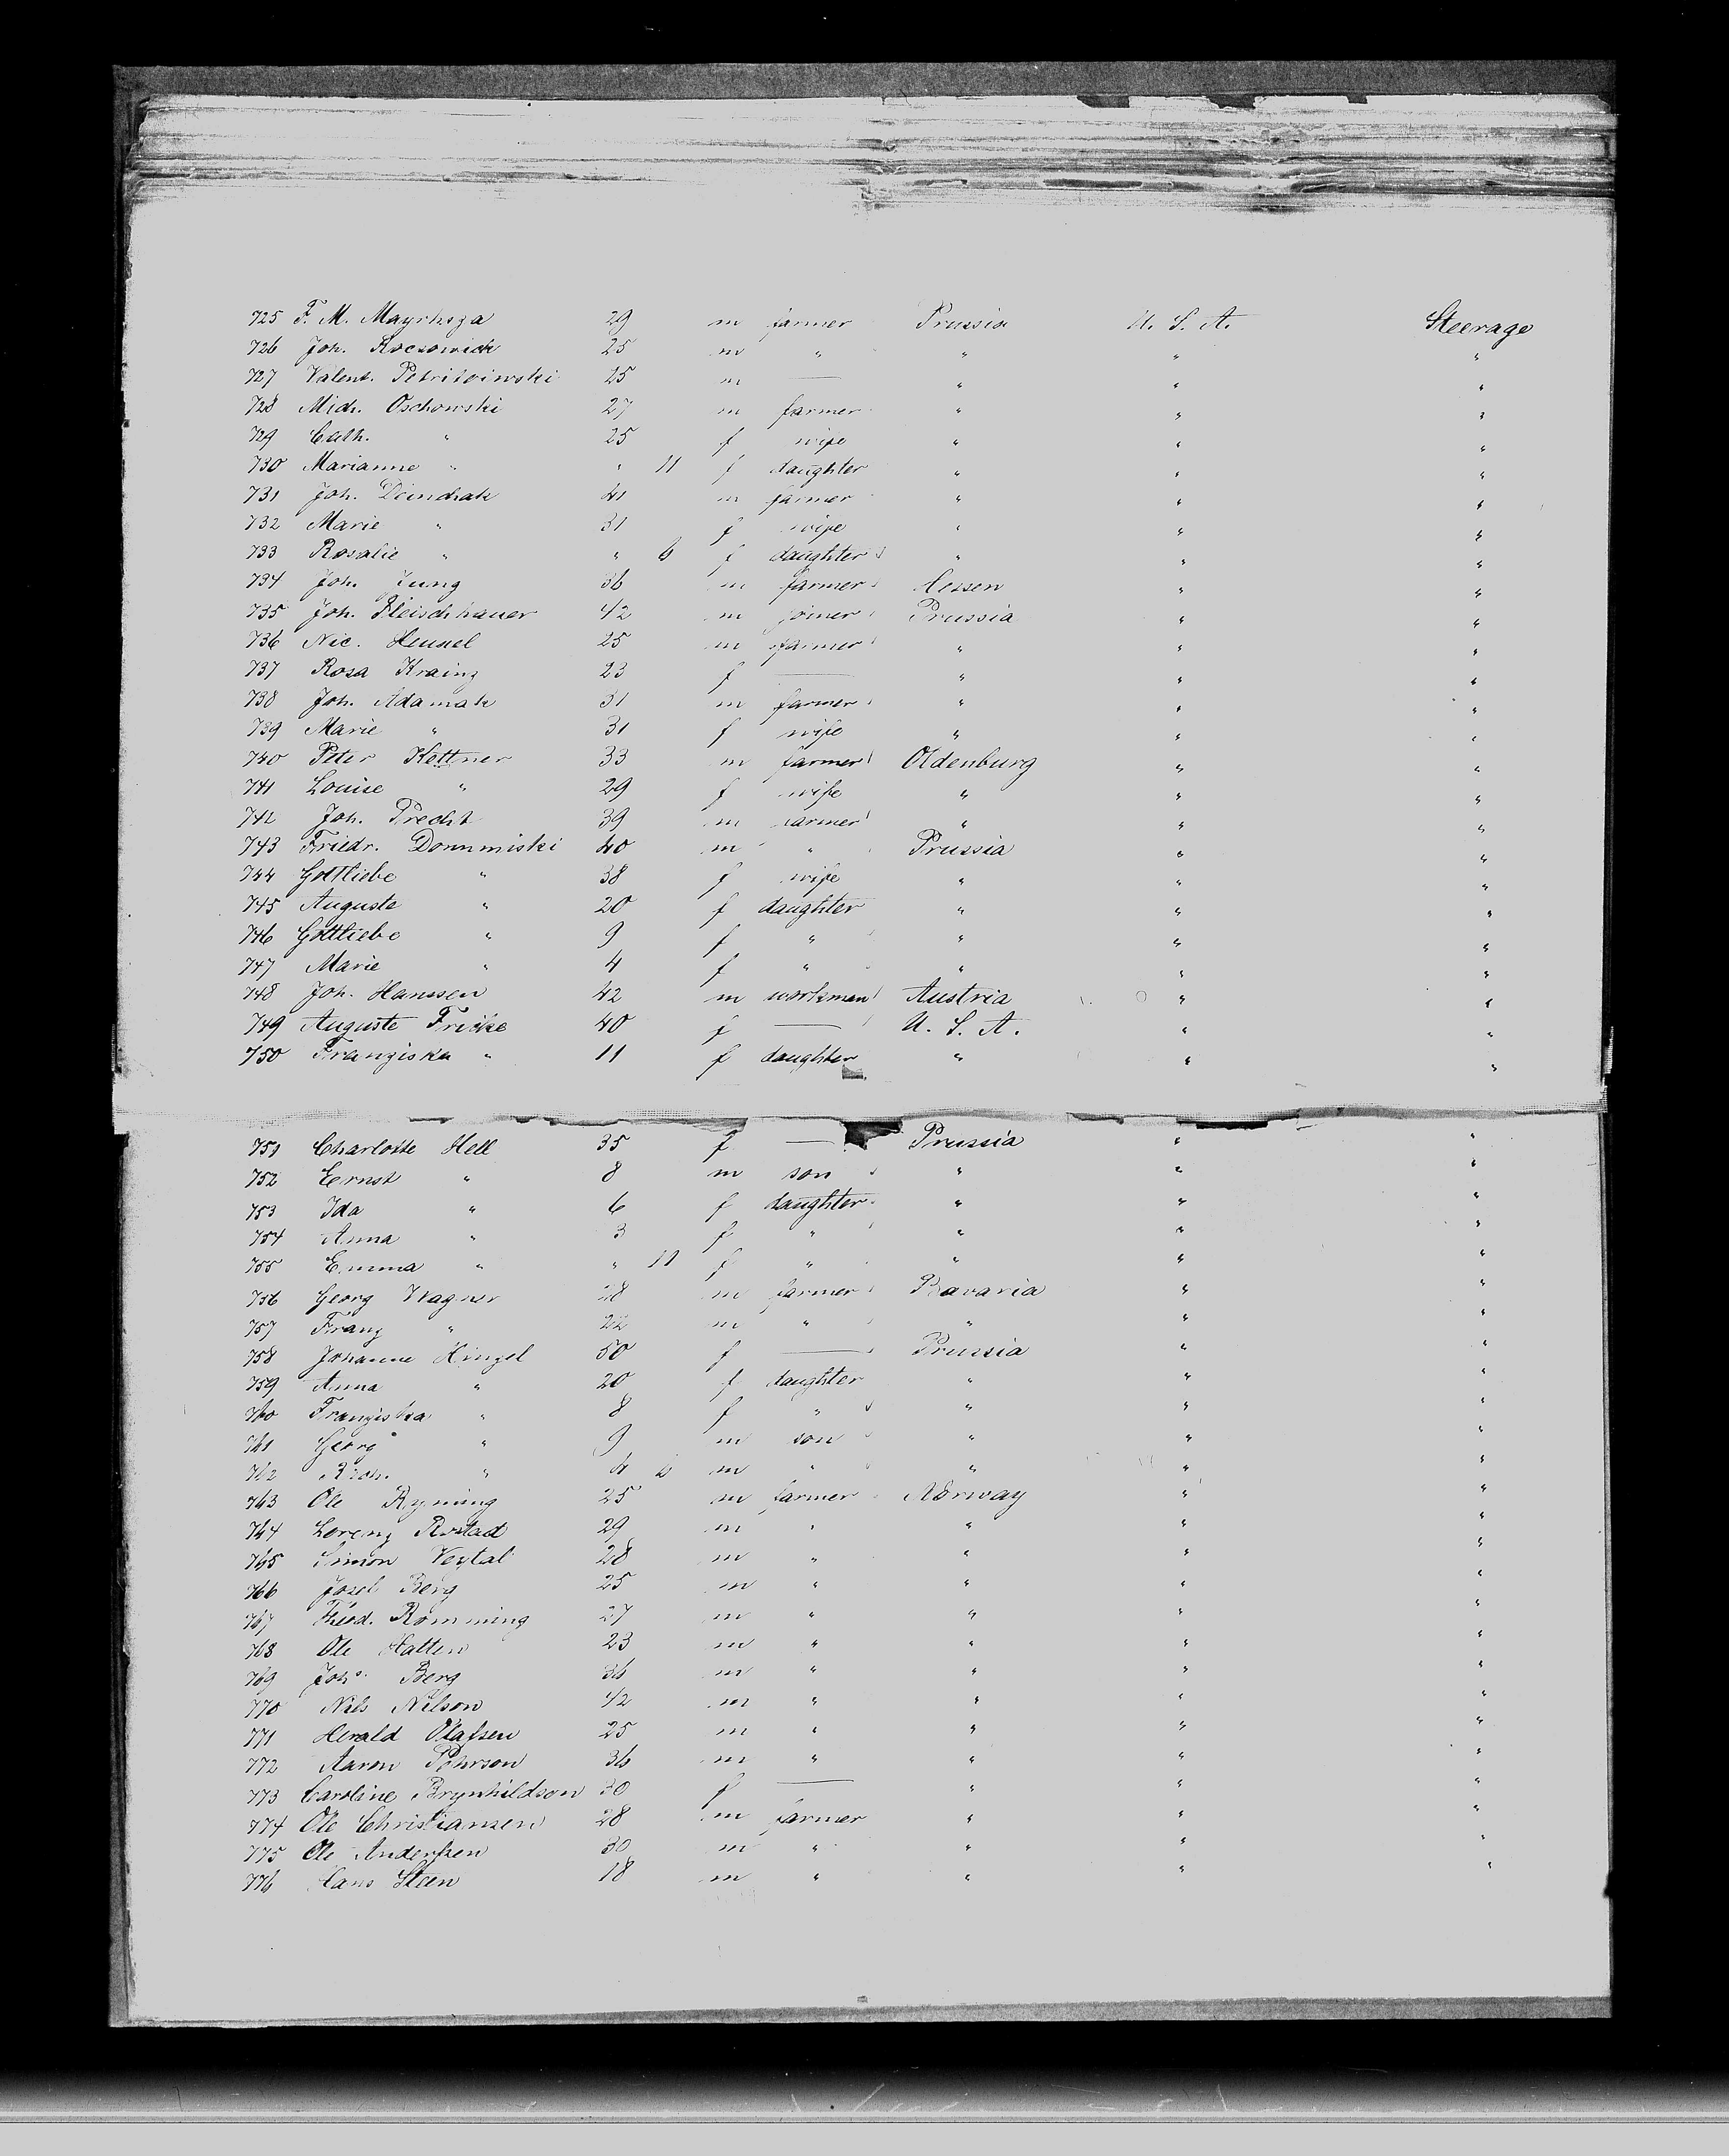 725 F. M. Mayrhsza 29 m farmer Prussia U. S. A. Steerage
726 Joh. Rocsowich 25 m " " " "
727 Valent. 25 m — " " "
728 Mich. Oschowski 27 m farmer " " "
729 Cath. " 25 f wife " " "
730 Marianne " " 11 f daughter " " "
731 Joh. 41 m farmer " " "
732 Marie " 31 f wife " " "
733 Rosalie " " 6 f daughter " " "
734 Joh. Jung 36 m farmer Hessen " "
735 Joh. Fleischhauer 42 m joiner Prussia " "
736 Nic. Hensel 25 m farmer " " "
737 Rosa Kraing 23 f — " " "
738 Joh. Adamak 31 m farmer " " "
739 Marie " 31 f wife " " "
740 Peter Kettner 33 m farmer Oldenburg " "
741 Louise " 29 f wife " " "
742 Joh. Precht 39 m farmer " " "
743 Friedr. Dommniski 40 m " Prussia " "
744 Gottliebe " 38 f wife " " "
745 Auguste " 20 f daughter " " "
746 Gottliebe " 9 f " " " "
747 Marie " 4 f " " " "
748 Joh. Hanssen 42 m workman Austria " "
749 Auguste Fricke 40 f — U. S. A. " "
750 Franziska " 11 f daughter " " "
751 Charlotte Hell 35 f — Prussia " "
752 Ernst " 8 m son " " "
753 Ida " 6 f daughter " " "
754 Anna " 3 f " " " "
755 Emma " " 11 f " " " "
756 Georg Wagner 28 m farmer Bavaria " "
757 Franz " 22 m " " " "
758 Johanne Hinzel 50 f — Prussia " "
759 Anna " 20 f daughter " " "
760 Franziska " 8 f " " " "
761 Georg " 9 m son " " "
762 " 4 6 m " " " "
763 Ole Ryning 25 m farmer Norway " "
764 Lorenz Rostad 29 m " " " "
765 Simon Vegtal 28 m " " " "
766 Josef Berg 25 m " " " "
767 Theod. Romming 27 m " " " "
768 Ole Hatten 23 m " " " "
769 Johs. Berg 36 m " " " "
770 Nils Nilson 42 m " " " "
771 Herald Olafsen 25 m " " " "
772 Aaron Pehrson 36 m " " " "
773 Caroline Brynhildson 30 f — " " "
774 Ole Christiansen 28 m farmer " " "
775 Ole Andersen 30 m " " " "
776 Hans Steen 18 m " " " "